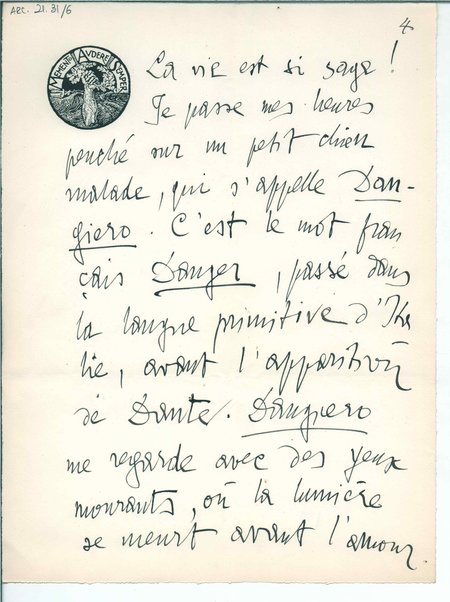 ARC. 21.31/6
4
MEMENTO AVDERE SEMPER
La vie est si sage !
Je passe mes heures
penché sur un petit chien
malade, qui s'appelle Dan-
giero. C'est le mot fran
çais Danger, passé dans
la langue primitive d'Ita
lie, avant l'apparition
de Dante. Dangiero
me regarde avec des yeux
mourants, où la lumière
se meurt avant l'amour.